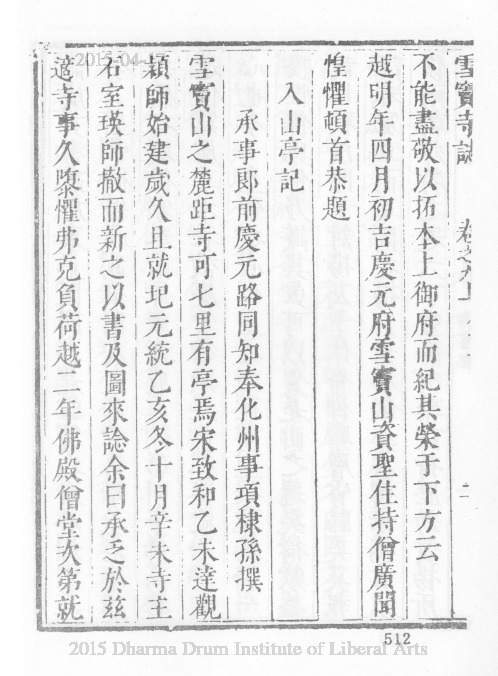 雪竇寺誌
卷之九上
二
不能盡敬以拓本上御府而紀其榮于下方云
越明年四月初吉慶元府雪竇山資聖住持僧廣聞
惶懼頓首恭題
入山亭記
承事郎前慶元路同知奉化州事項棣孫撰
雪竇山之麓距寺可七里有亭焉宋致和乙未達觀
穎師始建歲久且就圮元統乙亥冬十月辛未寺主
石室瑛師撤而新之以書及圖來諗余曰承乏於茲
適寺事久隳懼弗克負荷越二年佛殿僧堂次第就
2015-04-17
512
2015 Dharma Drum Institute of Liberal Arts